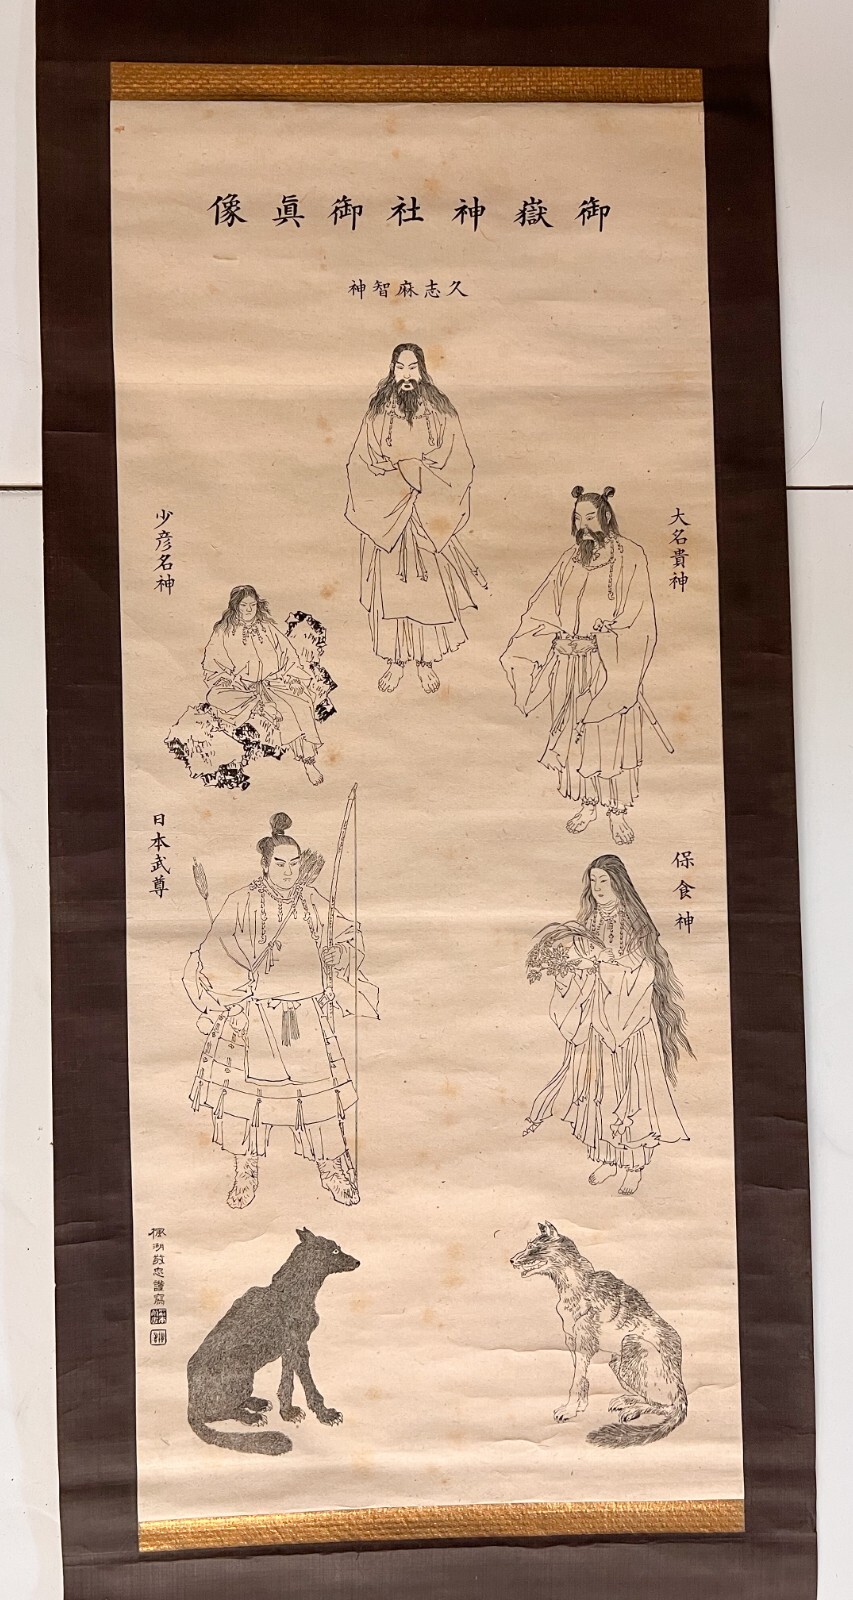 御嶽神社御眞像
久志麻智神
大名貴神
少彦名神
保食神
日本武尊